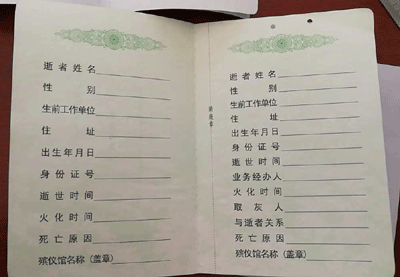 逝者姓名
性别
生前工作单位
住址
出生年月日
身份证号
逝世时间
火化时间
死亡原因
殡仪馆名称(盖章)
骑缝章
逝者姓名
性别
生前工作单位
住址
出生年月日
身份证号
逝世时间
业务经办人
火化时间
取灰人
与逝者关系
死亡原因
殡仪馆名称(盖章)